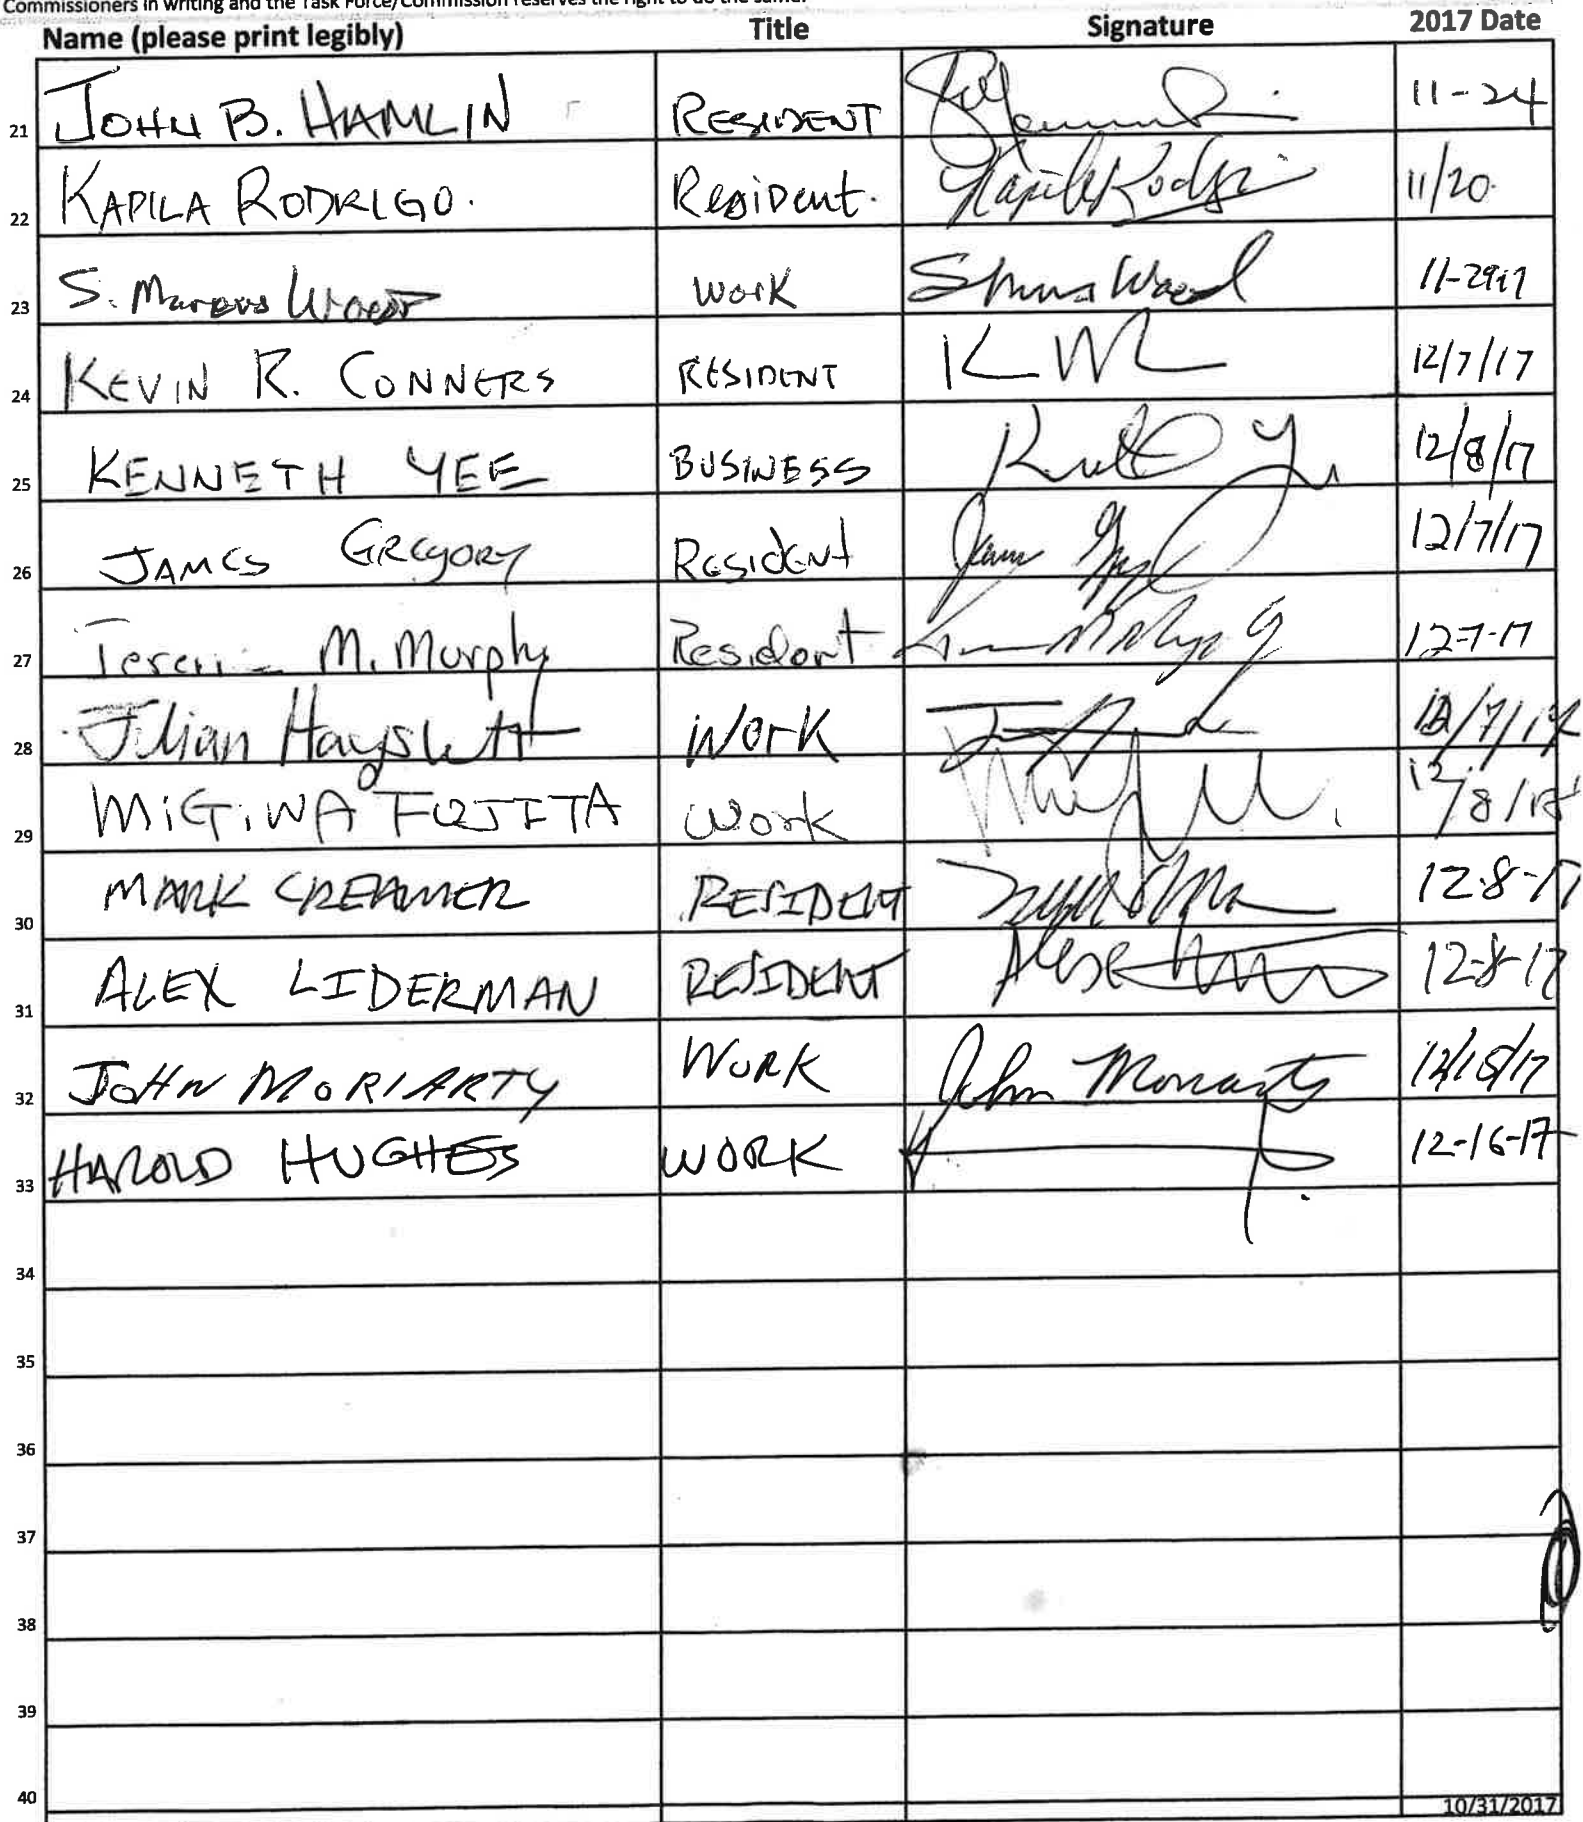 Commissioners in writing and the Task Force/Commission reserves the right to do the same.
Name (please print legibly) Title Signature 2017 Date
21 JOHN B. HAMLIN RESIDENT 11-24
22 KAPILA RODRIGO. Resident. Kapila Rodrigo 11/20
23 S. Marcus Wood work Wood
24 KEVIN R. CONNERS RESIDENT 12/7/17
25 KENNETH YEE BUSINESS 12/8/17
26 JAMES GREGORY Resident 12/7/17
27 M. Murphy Resident 12-7-17
28 Work
29 MiGiWA FUJITA Work
30 MARK CREAMER RESIDENT 12-8-17
31 ALEX LIDERMAN RESIDENT 12-8-17
32 JOHN MORIARTY WORK John Moriarty 12/15/17
33 HAROLD HUGHES WORK 12-16-17
34
35
36
37
38
39
40
10/31/2017